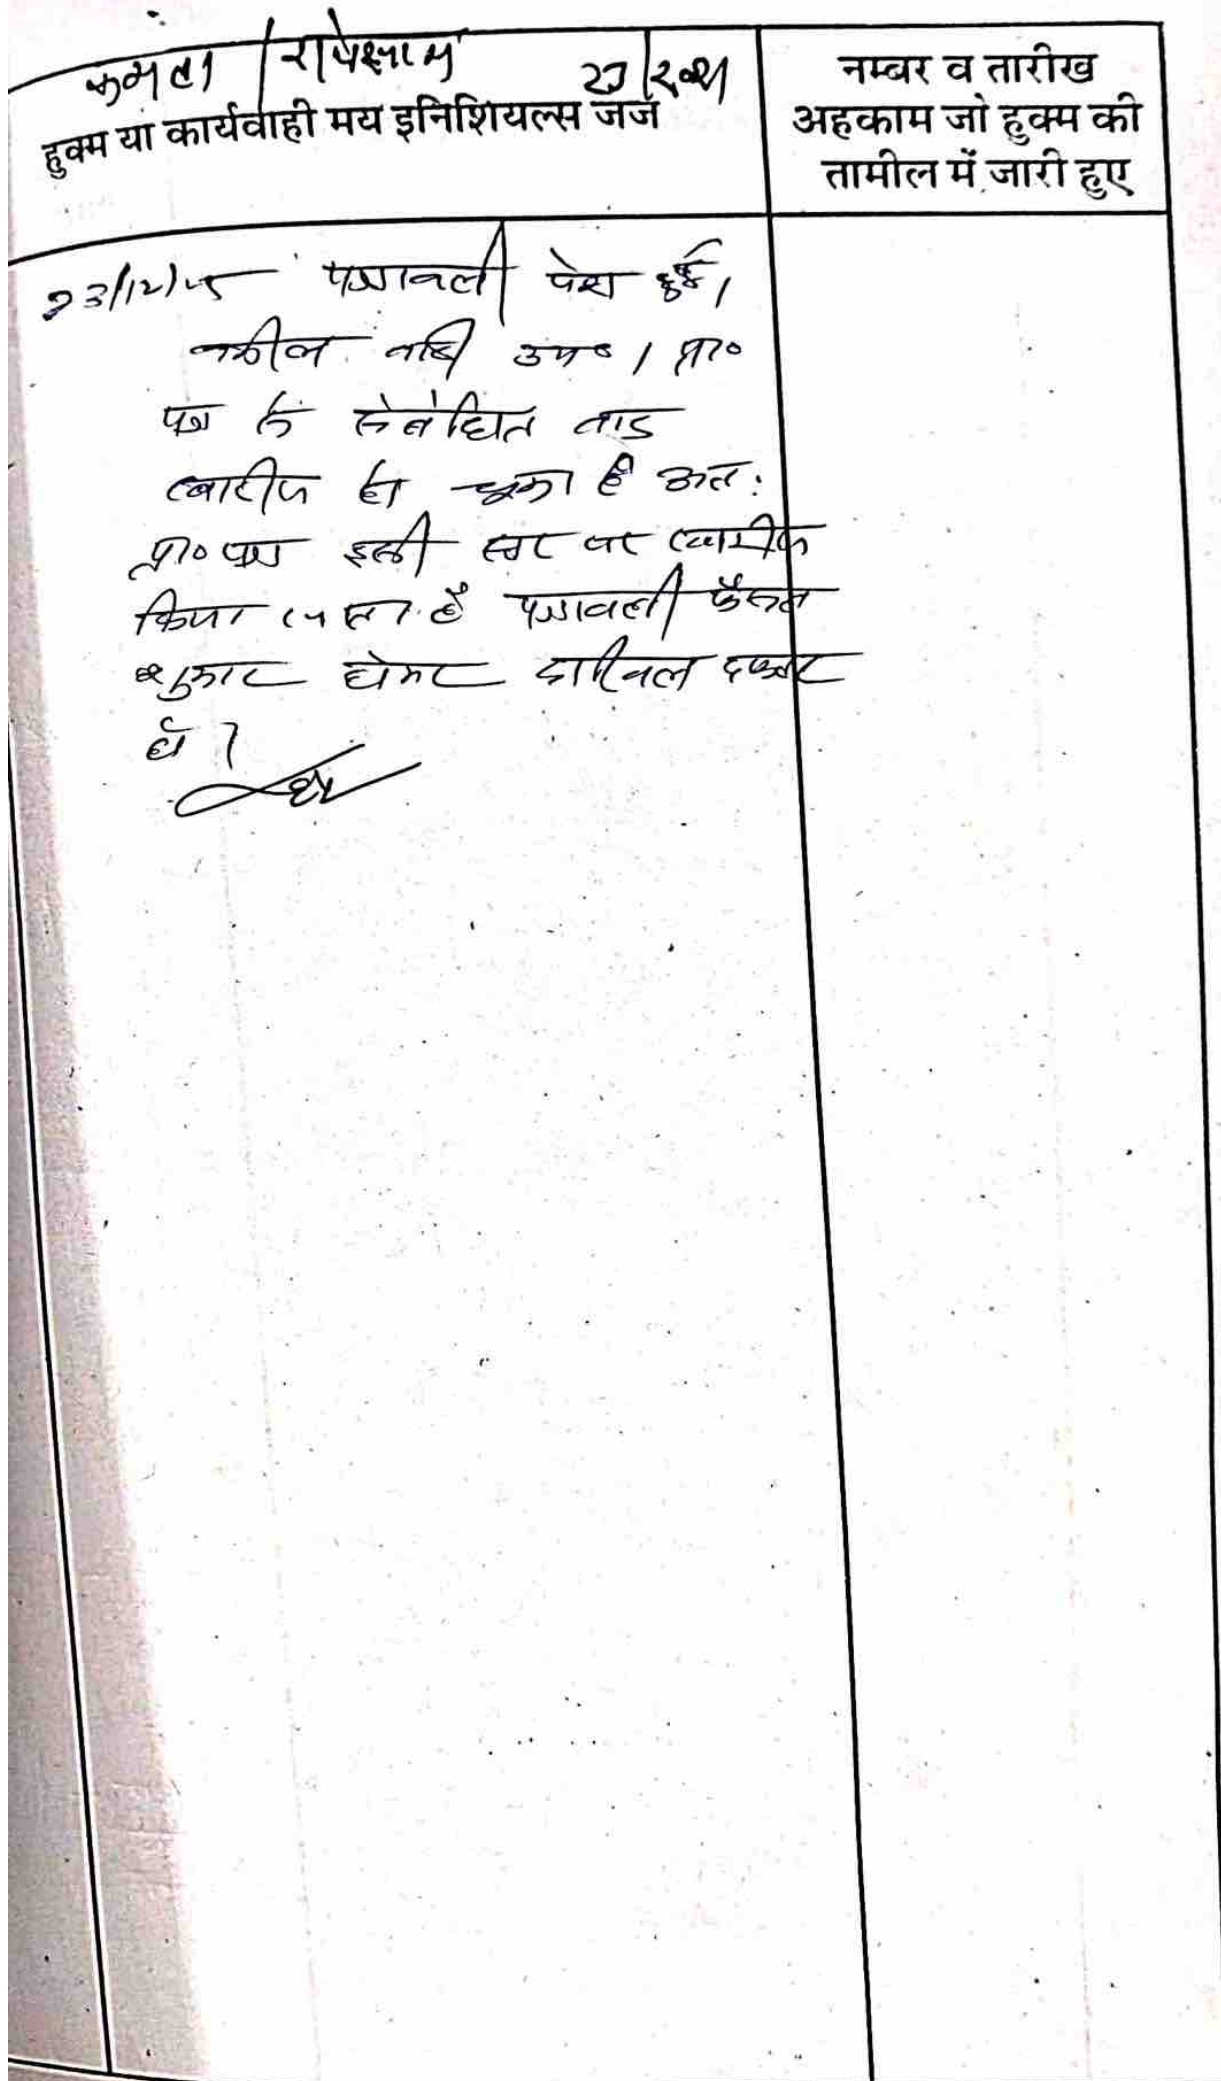 कमला / राधेश्याम 27/2021
हुक्म या कार्यवाही मय इनिशियल्स जज
नम्बर व तारीख
अहकाम जो हुक्म की
तामील में जारी हुए
23/12/25 पत्रावली पेश हुई।
वकील वादी उप० । प्रा०
पत्र से संबंधित वाद
खारीज हो चूका है अतः
प्रा० पत्र इसी स्तर पर खारीज
किया जाता है पत्रावली फैसल
शुमार होकर दाखिल दफ्तर
हो ।